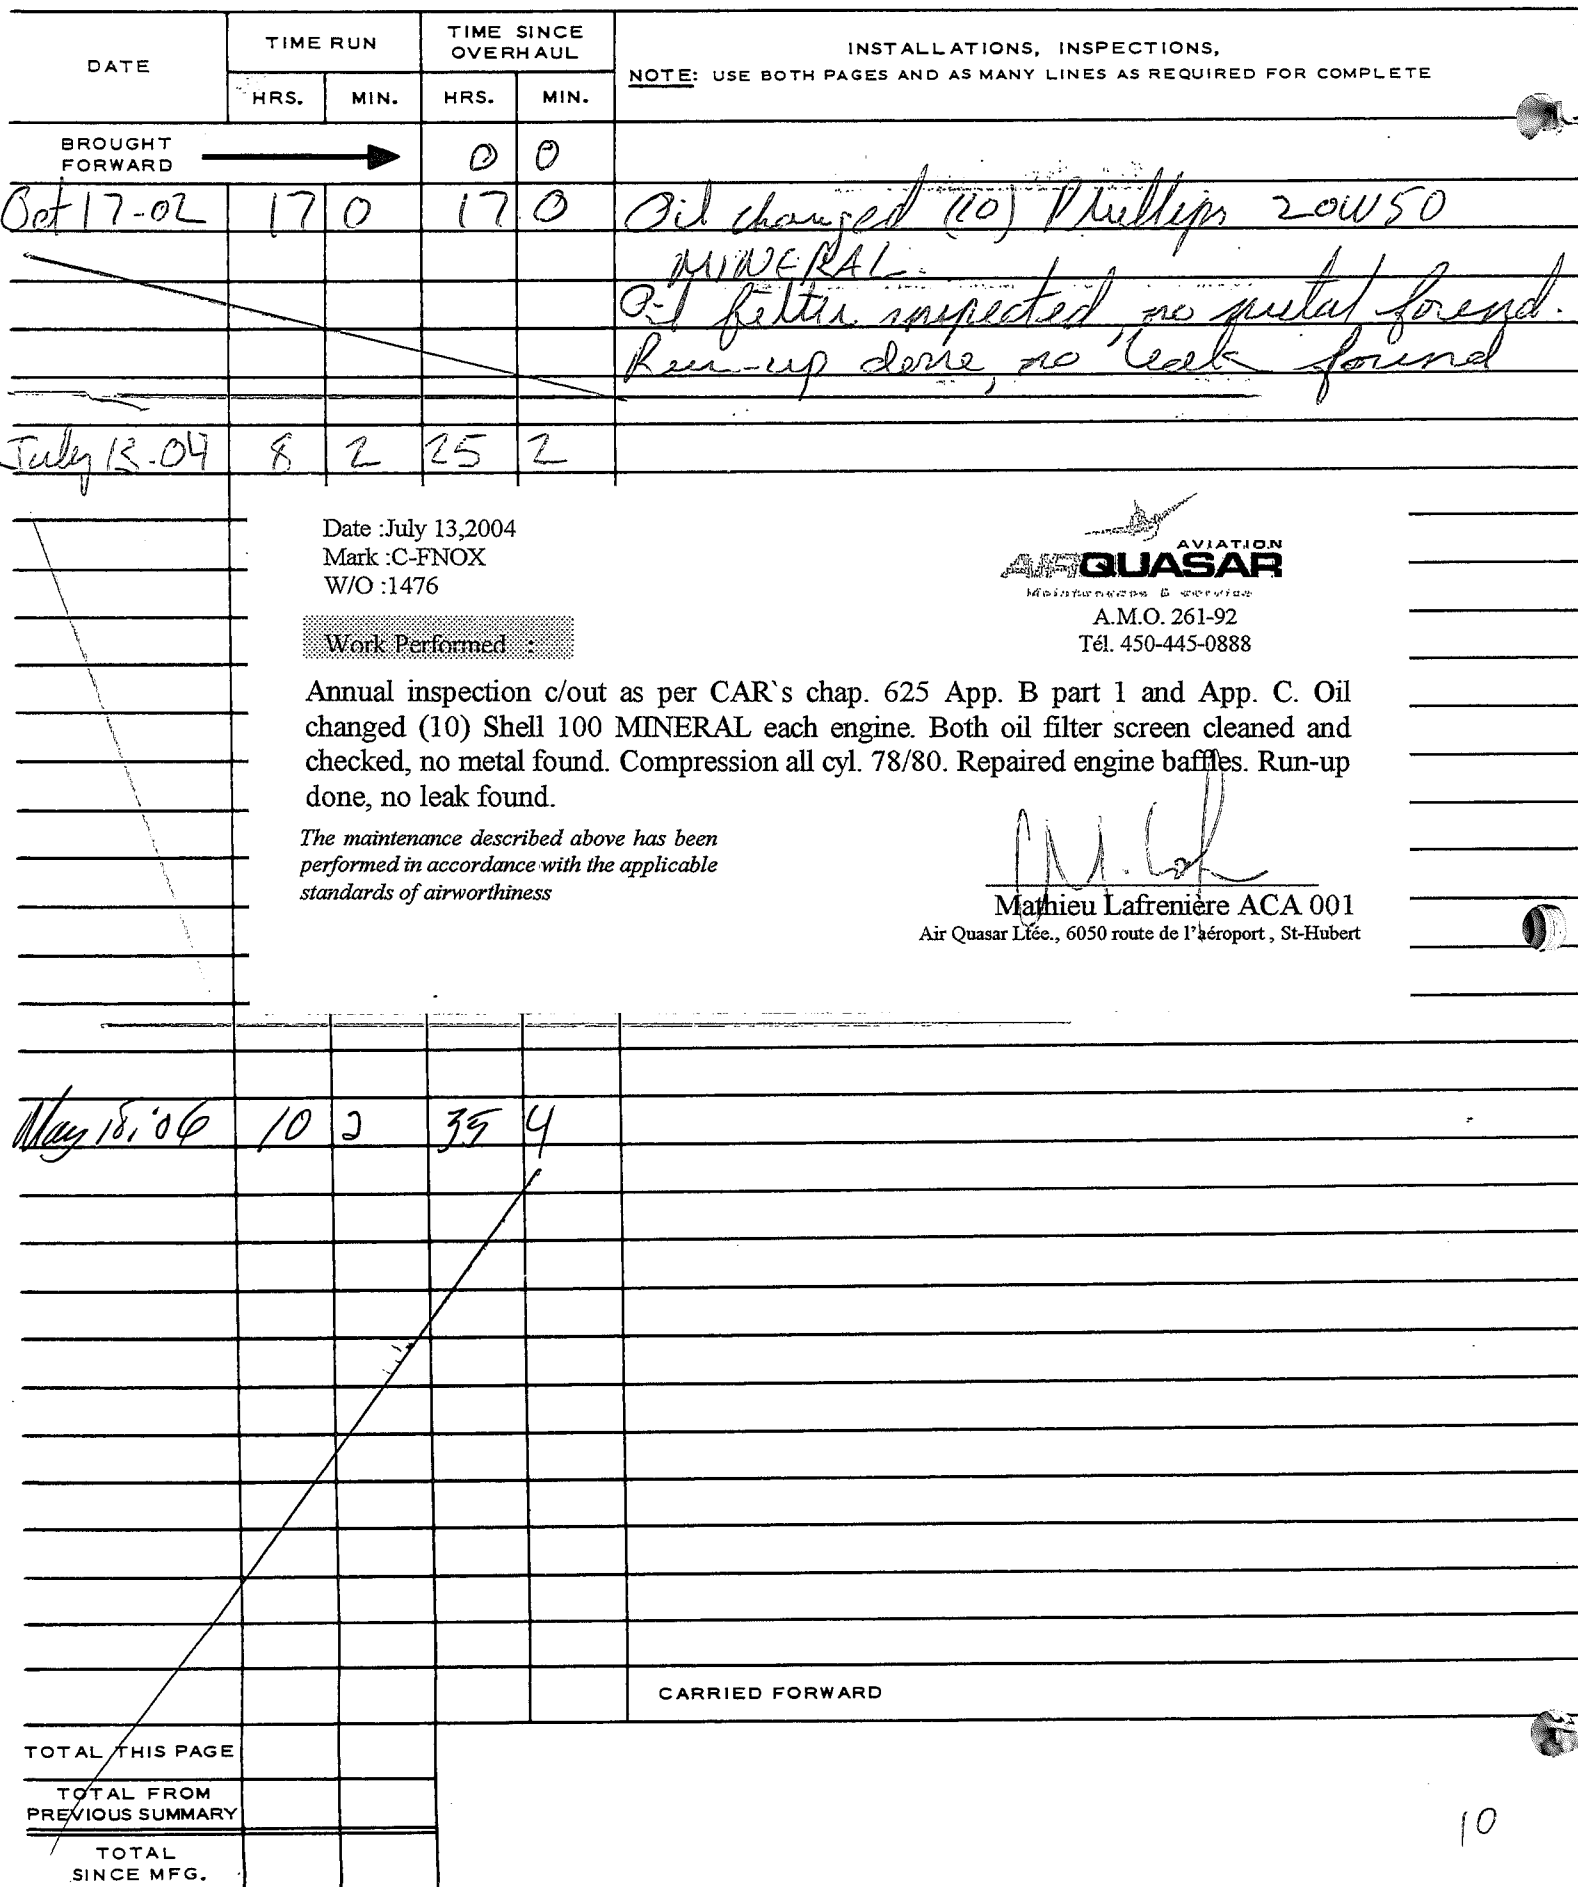 DATE
TIME RUN
TIME SINCE
OVERHAUL
INSTALLATIONS, INSPECTIONS,
NOTE: USE BOTH PAGES AND AS MANY LINES AS REQUIRED FOR COMPLETE
HRS. MIN. HRS. MIN.
BROUGHT
FORWARD 0 0
Oct 17-02 17 0 17 0 Oil changed (10) Phillips 20W50
MINERAL.
Oil filter inspected, no metal found.
Run-up done, no leak found
July 13-04 8 2 25 2
Date :July 13,2004
Mark :C-FNOX
W/O :1476
AVIATION
AIR QUASAR
Maintenance & service
A.M.O. 261-92
Tél. 450-445-0888
Work Performed :
Annual inspection c/out as per CAR`s chap. 625 App. B part 1 and App. C. Oil
changed (10) Shell 100 MINERAL each engine. Both oil filter screen cleaned and
checked, no metal found. Compression all cyl. 78/80. Repaired engine baffles. Run-up
done, no leak found.
The maintenance described above has been
performed in accordance with the applicable
standards of airworthiness
Mathieu Lafrenière ACA 001
Air Quasar Ltée., 6050 route de l'aéroport , St-Hubert
May 18, '06 10 2 35 4
CARRIED FORWARD
TOTAL THIS PAGE
TOTAL FROM
PREVIOUS SUMMARY
TOTAL
SINCE MFG.
10